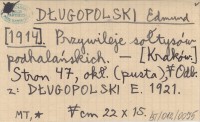 DŁUGOPOLSKI Edmund
[1914] Przywileje sołtysów
podhalańskich. — [Kraków.]
Stron 47, okł. (pusta), Odb.
z: DŁUGOPOLSKI E. 1921.
MT,* cm 22 x 15.